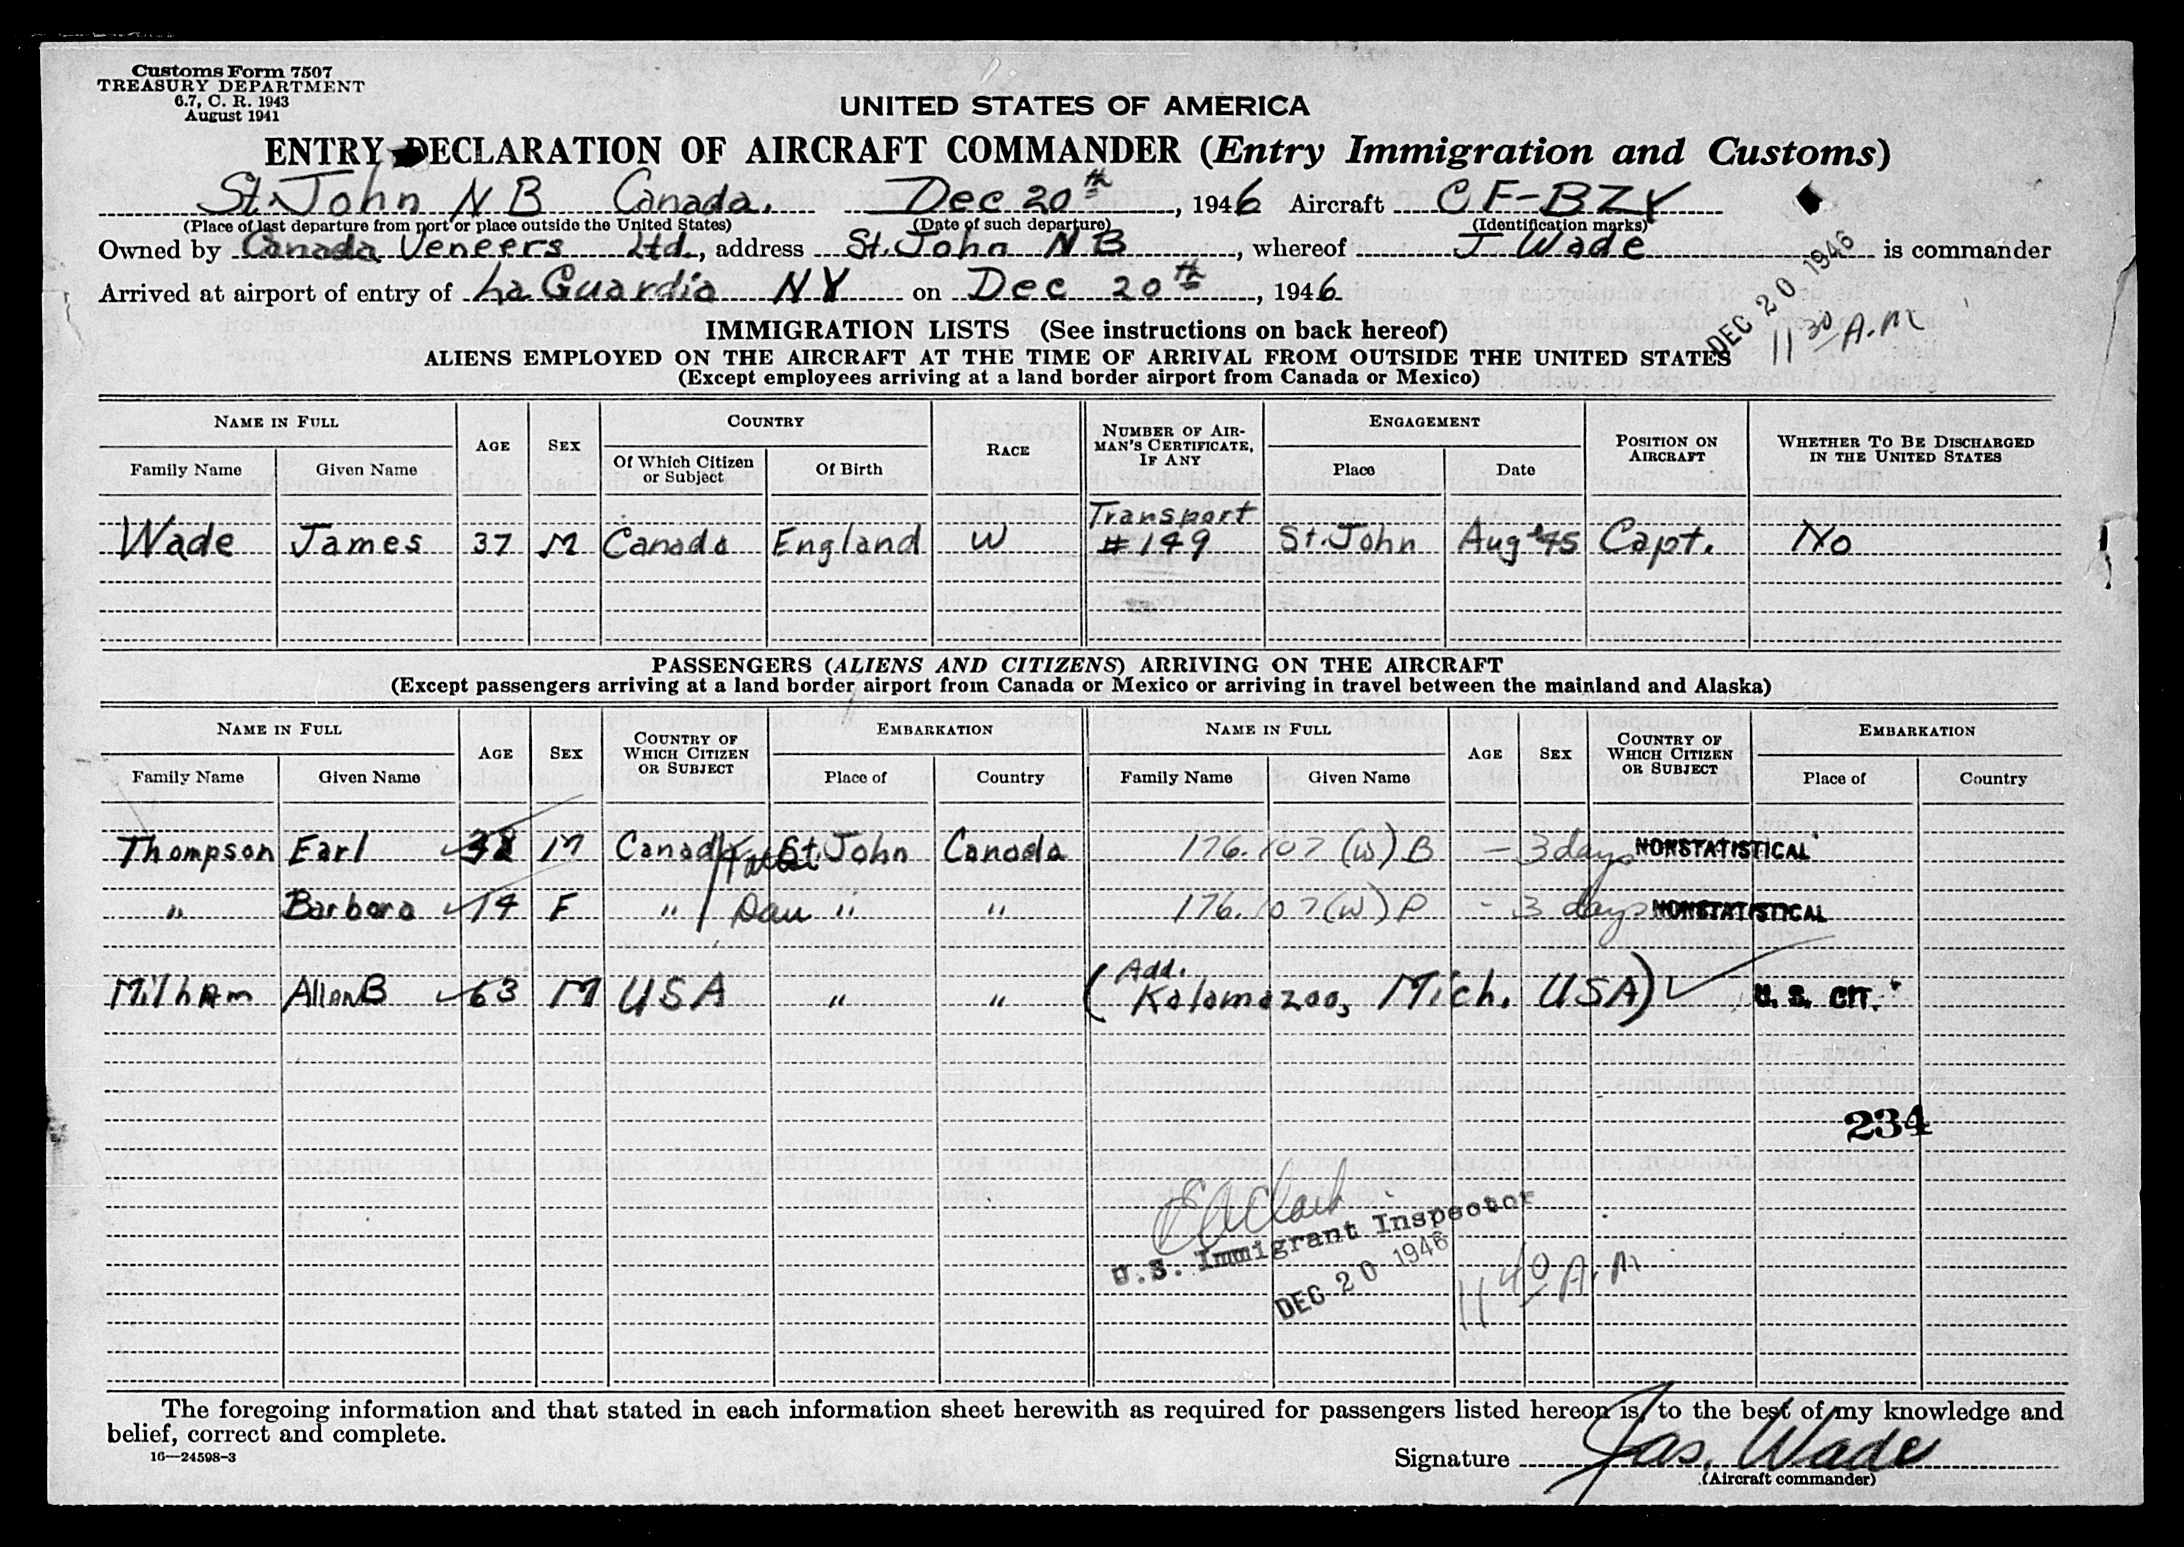 Customs Form 7507
TREASURY DEPARTMENT
6.7, C. R. 1943
August 1941
UNITED STATES OF AMERICA
ENTRY DECLARATION OF AIRCRAFT COMMANDER (Entry Immigration and Customs)
St. John N B Canada. Dec 20th, 1946 Aircraft CF-BZY
(Place of last departure from port or place outside the United States) (Date of such departure) (Identification marks)
Owned by Canada Veneers Ltd., address St. John N B, whereof J Wade is commander
Arrived at airport of entry of La Guardia NY on Dec 20th, 1946
DEC 20 1946
11 30 A.M
IMMIGRATION LISTS (See instructions on back hereof)
ALIENS EMPLOYED ON THE AIRCRAFT AT THE TIME OF ARRIVAL FROM OUTSIDE THE UNITED STATES
(Except employees arriving at a land border airport from Canada or Mexico)
NAME IN FULL AGE SEX COUNTRY RACE NUMBER OF AIRMAN'S CERTIFICATE, IF ANY ENGAGEMENT POSITION ON AIRCRAFT WHETHER TO BE DISCHARGED IN THE UNITED STATES
Family Name Given Name Of Which Citizen or Subject Of Birth Place Date
Wade James 37 M Canada England W Transport #149 St. John Aug 45 Capt. No
PASSENGERS (ALIENS AND CITIZENS) ARRIVING ON THE AIRCRAFT
(Except passengers arriving at a land border airport from Canada or Mexico or arriving in travel between the mainland and Alaska)
NAME IN FULL AGE SEX COUNTRY OF WHICH CITIZEN OR SUBJECT EMBARKATION NAME IN FULL AGE SEX COUNTRY OF WHICH CITIZEN OR SUBJECT EMBARKATION
Family Name Given Name Place of Country Family Name Given Name Place of Country
Thompson Earl 38 M Canada St. John Canada 176.107 (W) B - 3 days NONSTATISTICAL
" Barbara 14 F " / Dau " " 176.107 (W) P - 3 days NONSTATISTICAL
Milham Allan B 63 M USA " " (Add. Kalamazoo, Mich. USA) U. S. CIT.
234
E A Clark
U.S. Immigrant Inspector
DEC 20 1946
11 40 A.M
The foregoing information and that stated in each information sheet herewith as required for passengers listed hereon is, to the best of my knowledge and
belief, correct and complete.
16—24598-3
Signature Jas. Wade
(Aircraft commander)